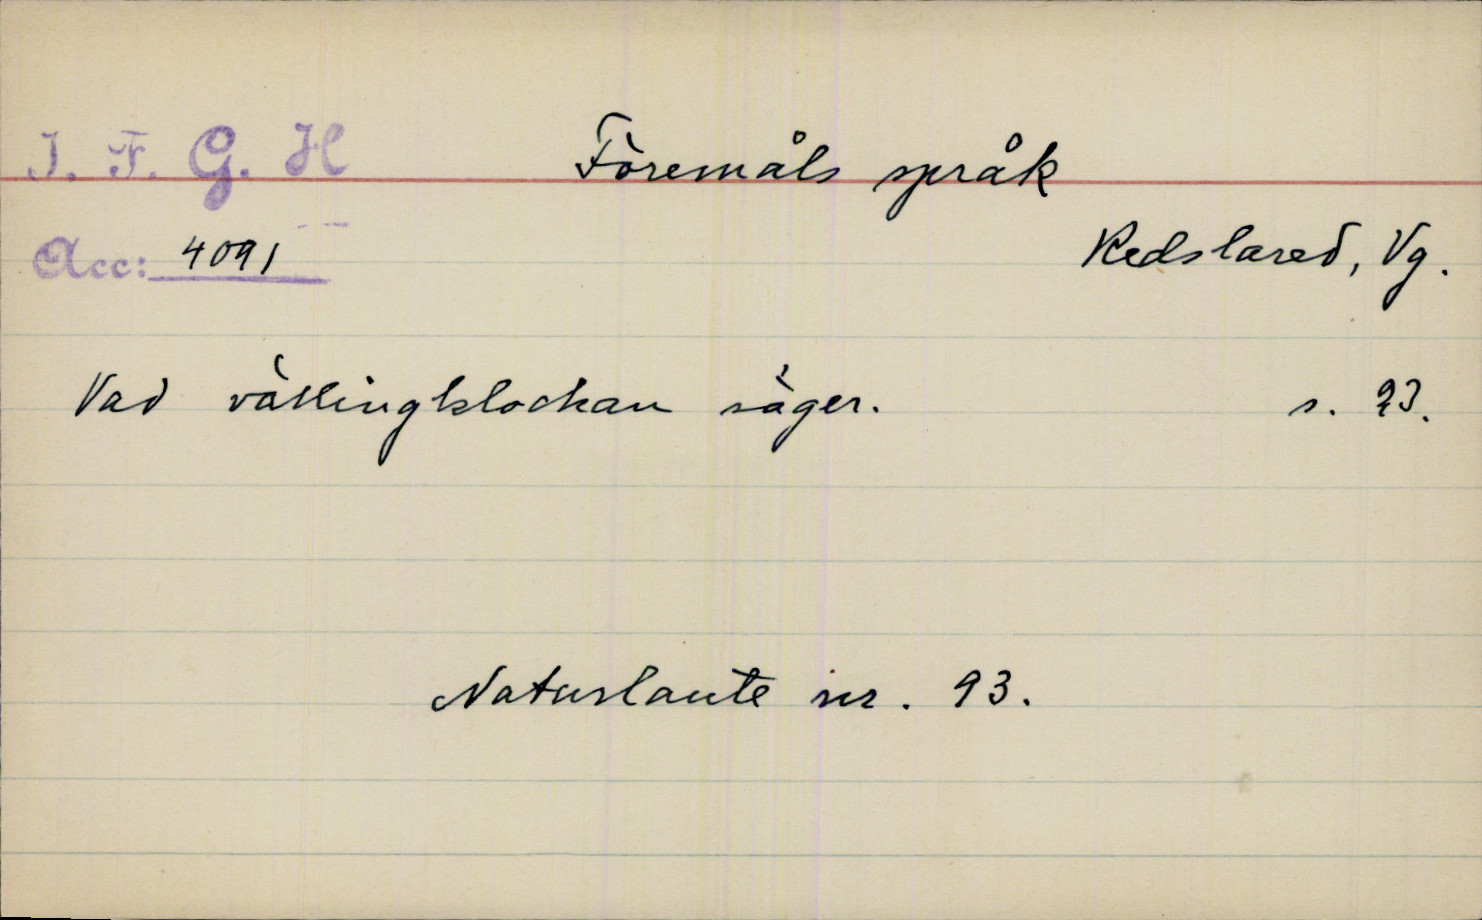 I. F. G. H
Föremåls språk
Acc: 4091
Kedslared, Vg.
Vad vällingklockan säger. s. 23.
Naturlaute nr. 93.